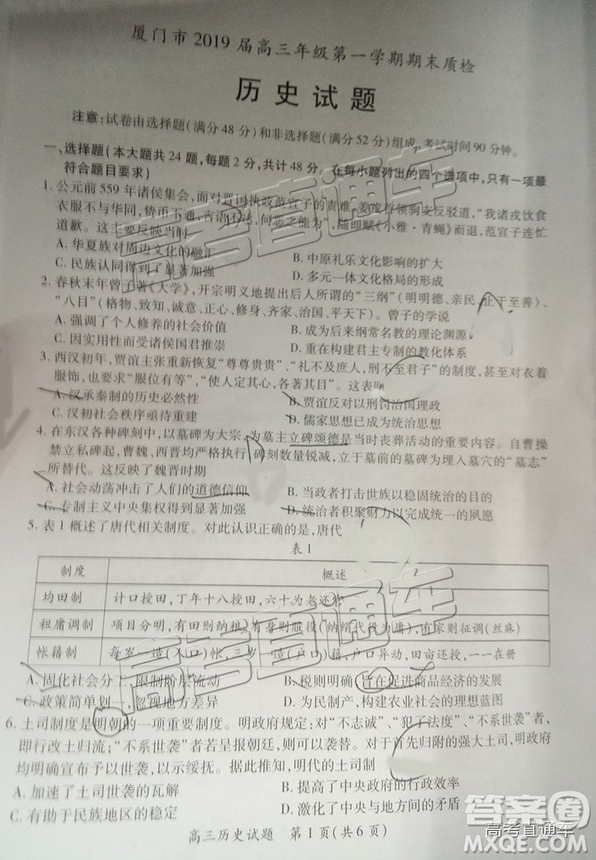 厦门市2019届高三年级第一学期期末质检
历史试题
注意:试卷由选择题(满分48分)和非选择题(满分52分)组成,考试时间90分钟。
一、选择题(本大题共24题,每题2分,共计48分。在每小题列出的四个选项中,只有一项最
符合题目要求)
1. 公元前559年诸侯集会,面对晋国执政范宣子的责难,姜戎首领驹支反驳道,“我诸戎饮食
衣服不与华同,贽币不通,言语不达,何恶之能为”,随即赋《小雅·青蝇》而退,范宣子连忙
道歉。这主要反映当时
A. 华夏族对周边文化的融汇
B. 中原礼乐文化影响的扩大
C. 民族认同得到了显著增强
D. 多元一体文化格局的形成
2. 春秋末年曾子著《大学》,开宗明义地提出后人所谓的“三纲”(明明德、亲民、止于至善)、
“八目”(格物、致知、诚意、正心、修身、齐家、治国、平天下)。曾子的学说
A. 强调了个人修养的社会价值
B. 成为后来纲常名教的理论渊源
C. 因实用性而受诸侯国君青睐
D. 重在构建君主专制的教化体系
3. 西汉初年,贾谊主张重新恢复“尊尊贵贵”、“礼不及庶人,刑不至君子”的制度,甚至对衣着
服饰,也要求“服位有等”,“使人定其心,各著其目”。这表明
A. 汉承秦制的历史必然性
B. 贾谊反对以刑罚治国理政
C. 汉初社会秩序亟待重建
D. 儒家思想已成为统治思想
4. 在东汉各种碑刻中,以墓碑为大宗,为墓主立碑颂德是当时丧葬活动中的重要内容。自曹操
禁立私碑起,曹魏、西晋均严格执行,碑刻数量锐减,立于墓前的墓碑为埋入墓穴的“墓志”
所替代。这反映了魏晋时期
A. 社会动荡冲击了人们的道德信仰
B. 当政者打击世族以稳固统治的目的
C. 专制主义中央集权得到显著加强
D. 统治者积聚财力以完成统一的夙愿
5. 表1概述了唐代相关制度。对此认识正确的是,唐代
表1
制度 概述
均田制 计口授田,丁年十八授田,六十为老还官
租庸调制 项目分明,有田则纳租,有身则服役(纳绢代役为庸),有家则征调(丝麻)
帐籍制 每岁一造(人口)帐,三岁一造户(口)籍,户口异动,田亩还授,一一在册
A. 固化社会分工,限制阶层流动
B. 税则明确,旨在促进商品经济的发展
C. 政策简单划一,忽视地方差异
D. 为民制产,构建农业社会的理想蓝图
6. 土司制度是明朝的一项重要制度。明政府规定;对“不志诚”、“犯了法度”、“不系世袭”者,
即行改土归流;“不系世袭”者若呈报朝廷,则可以世袭。对于首先归附的强大土司,明政府
均明确宣布予以世袭、不做流官。据此推知,明代的土司制
A. 加速了世袭的瓦解
B. 提高了中央政府的行政效率
C. 有助于民族地区的稳定
D. 激化了中央与地方间的矛盾
高三历史试题 第1页(共6页)
高考直通车
高考直通车
答案圈
高考直通车